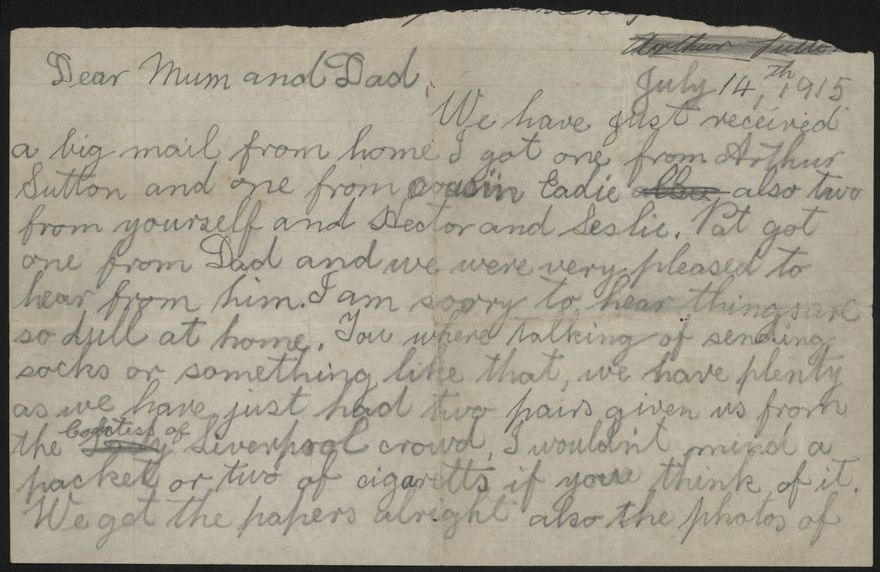 Arthur Sutto
July 14th, 1915
Dear Mum and Dad,
We have just received
a big mail from home I got one from Arthur
Sutton and one from cousin Eadie also also two
from yourself and Hector and Leslie. Pat got
one from Dad and we were very pleased to
hear from him. I am sorry to hear things are
so dull at home. You where talking of sending
socks or something like that, we have plenty
as we have just had two pairs given us from
the Lady Countess of Liverpool crowd, I wouldn't mind a
packet or two of cigaretts if you think of it.
We get the papers alright also the photos of